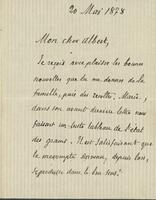 20 Mai 1878
Mon cher Albert,
Je reçois avec plaisir les bonnes
nouvelles que tu me donnes de la
famille, puis des récoltes. Marie,
dans son avant dernière lettre nous
faisait un triste tableau de l'état
des grains. Il est satisfaisant que
le mécompte survenu, depuis lors,
se produise dans le bon sens.